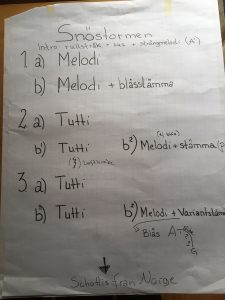 Snöstormen
Intro: rullstråk + sus + strängmelodi (A')
1 a) Melodi
b) Melodi + blåsstämma
2 a) Tutti
b') Tutti b²) Melodi + stämma
3 a) Tutti
b') Tutti b²) Melodi + Variantstämma
Blås A
G
Schottis från Norge